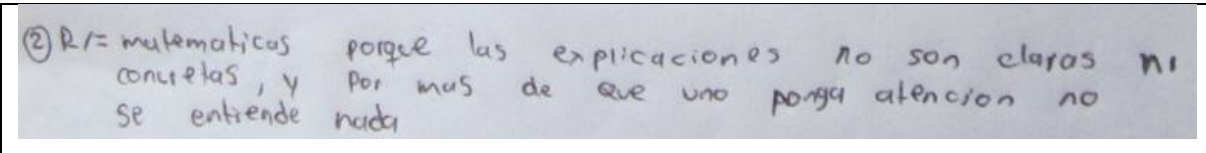 ② R/= matematicas porque las explicaciones no son claras ni
concretas, y por mas de que uno ponga atencion no
se entiende nada